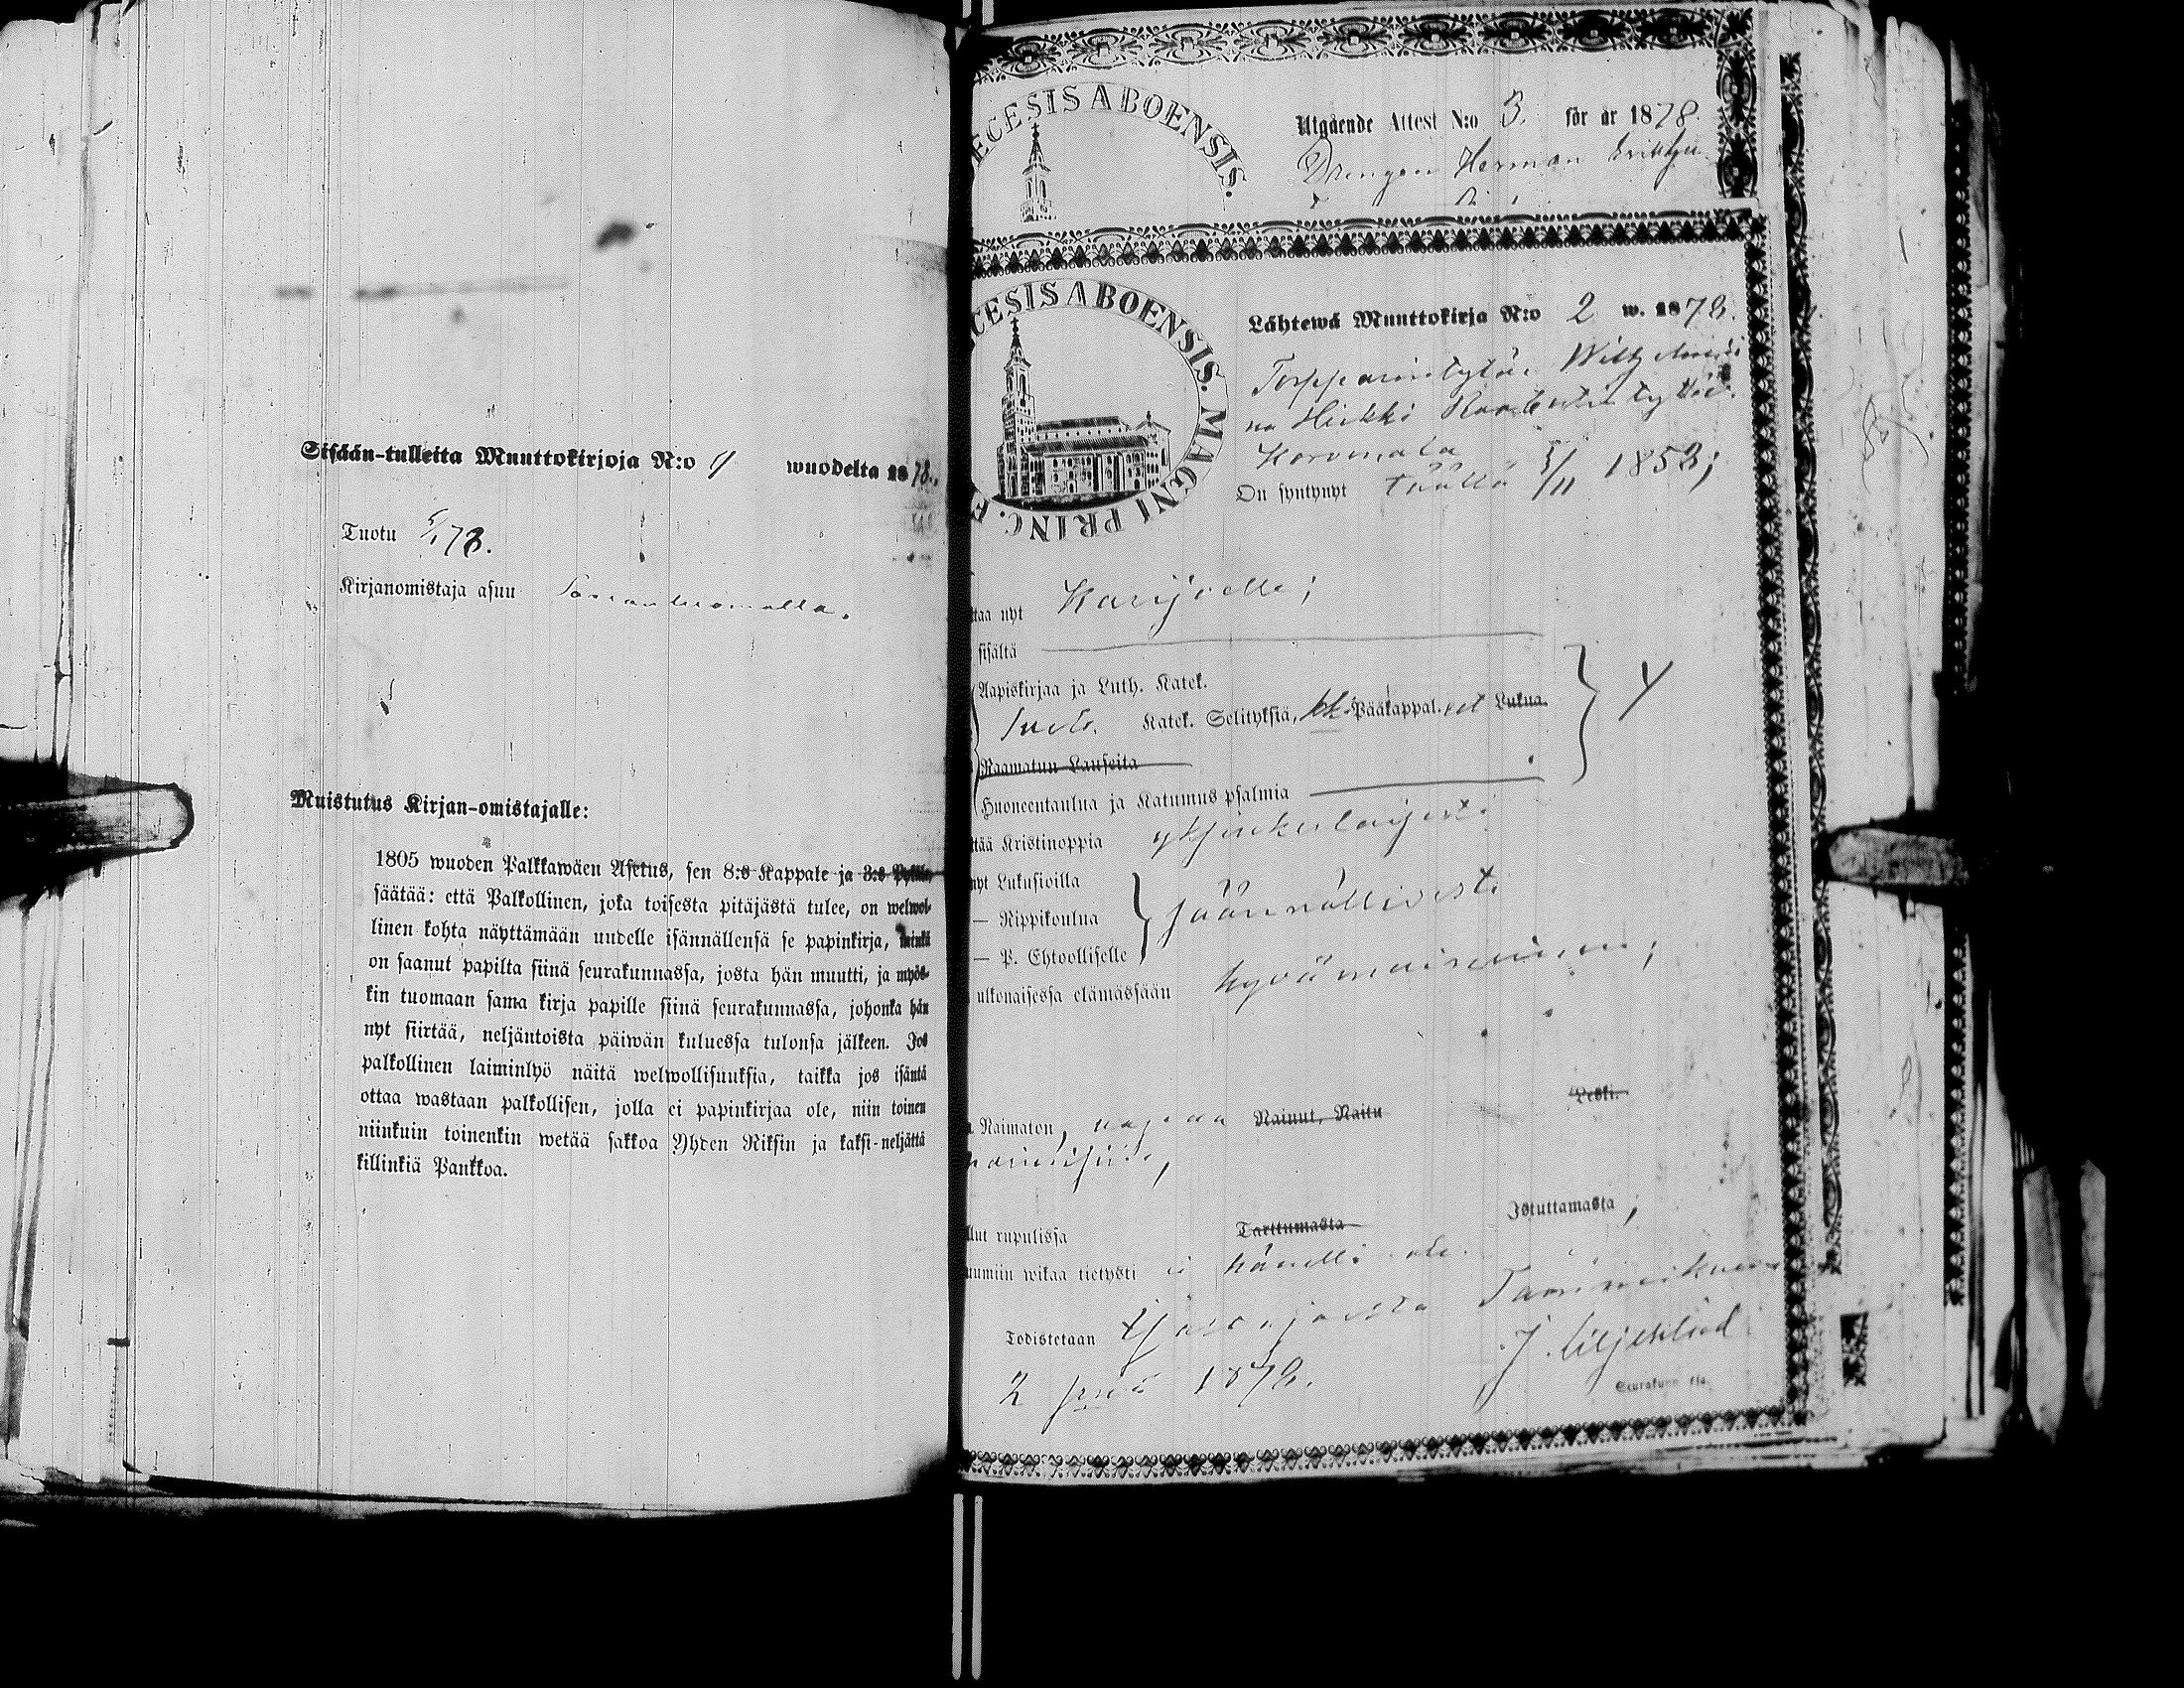 Sisään-tulleita Muuttokirjoja N:o 9 wuodelta 1878.
Tuotu 5/1 78.
Kirjanomistaja asuu
Muistutus Kirjan-omistajalle:
1805 wuoden Palkkawäen Asetus, sen 8:s Kappale ja 3:s Pykälä,
säätää: että Palkollinen, joka toisesta pitäjästä tulee, on welwol-
linen kohta näyttämään uudelle isännällensä se papinkirja, minkä
on saanut papilta siinä seurakunnassa, josta hän muutti, ja myös-
kin tuomaan sama kirja papille siinä seurakunnassa, johonka hän
nyt siirtää, neljäntoista päiwän kuluessa tulonsa jälkeen. Jos
palkollinen laiminlyö näitä welwollisuuksia, taikka jos isäntä
ottaa wastaan palkollisen, jolla ei papinkirjaa ole, niin toinen
niinkuin toinenkin wetää sakkoa Yhden Riksin ja kaksi-neljättä
killinkiä Pankkoa.
ECESIS ABOENSIS.
Utgående Attest N:o 3. för år 1878.
Drengen Herman
CESIS ABOENSIS. MAGNI PRINC. F
Lähtewä Muuttokirja N:o 2 w. 1878.
Torpparintytär
na Heikki
On syntynyt täällä 5/11 1853;
taa nyt Karijoelle;
sisältä
Aapiskirjaa ja Luth. Katek.
Katek. Selityksiä, Pääkappal. Lukua.
Raamatun Lauseita
Huoneentaulua ja Katumus psalmia
ttää Kristinoppia yksinkertaisesti
nyt Lukusioilla
— Rippikoulua säännöllisesti
— P. Ehtoolliselle
ulkonaisessa elämässään hyvämaineinen;
Naimaton, vapaa Nainut, Naitu Leski.
naimisiin,
llut rupulissa Tarttumasta Istuttamasta,
uumiin wikaa tietysti ei hänellä ole.
Todistetaan Tammikuun
2 p:nä 1878. J. Liljeblad
Seurakunn